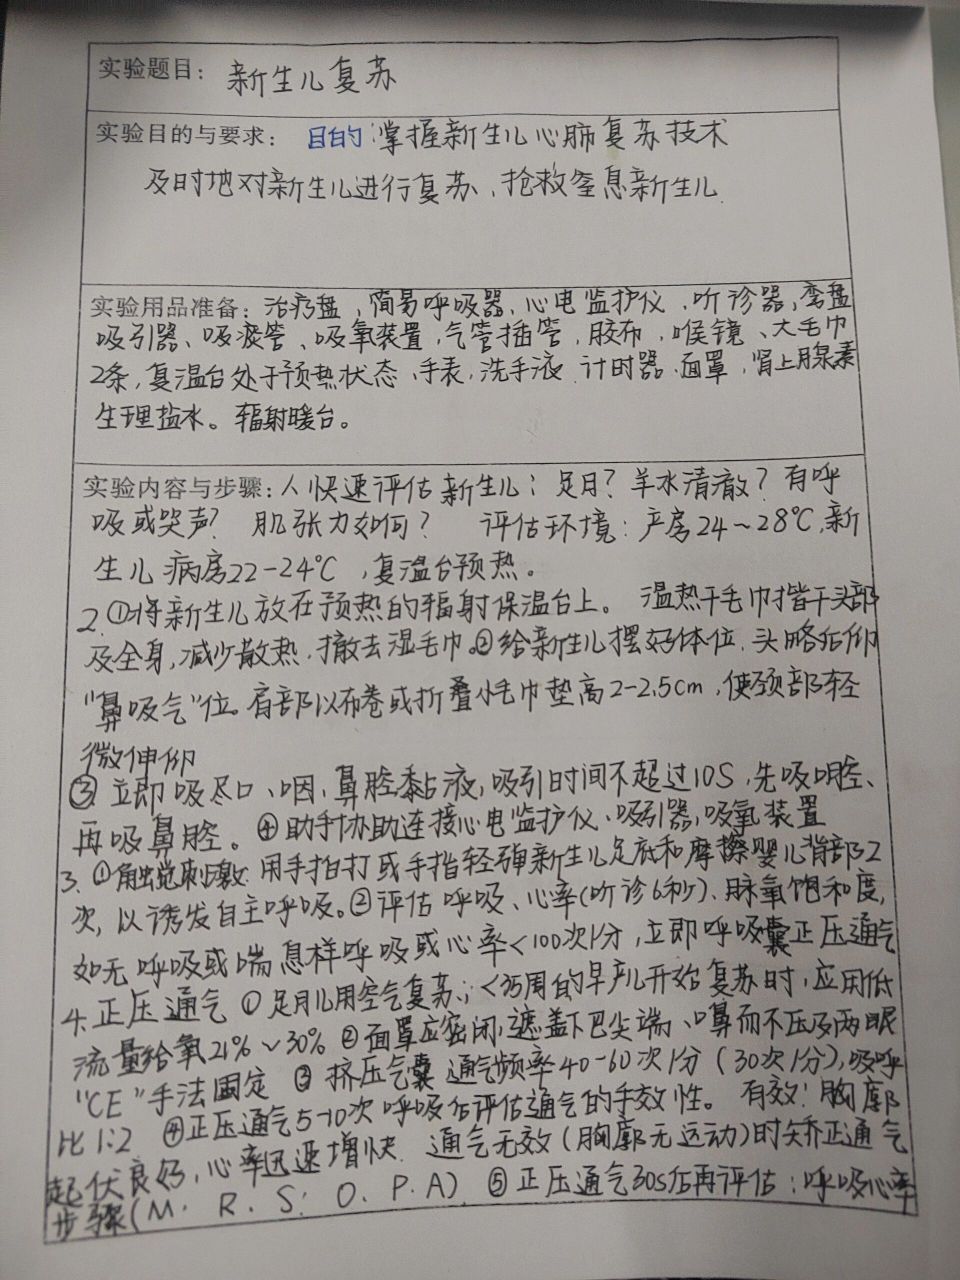 实验题目：新生儿复苏
实验目的与要求：目的：掌握新生儿心肺复苏技术
及时地对新生儿进行复苏、抢救窒息新生儿.
实验用品准备：治疗盘、简易呼吸器、心电监护仪、听诊器、弯盘
吸引器、吸痰管、吸氧装置、气管插管、胶布、喉镜、大毛巾
2条，复温台处于预热状态、手表、洗手液、计时器、面罩，肾上腺素
生理盐水。辐射暖台。
实验内容与步骤：1、快速评估新生儿：足月？羊水清澈？有呼
吸或哭声？肌张力如何？ 评估环境：产房24～28℃，新
生儿病房22-24℃，复温台预热。
2.①将新生儿放在预热的辐射保温台上。温热干毛巾揩干头部
及全身，减少散热，撤去湿毛巾。②给新生儿摆好体位，头略后仰
"鼻吸气"位。肩部以布卷或折叠小毛巾垫高2-2.5cm，使颈部轻
微伸仰
③立即吸尽口、咽、鼻腔黏液，吸引时间不超过10S，先吸口腔、
再吸鼻腔。④助手协助连接心电监护仪、吸引器，吸氧装置
3.①触觉刺激：用手拍打或手指轻弹新生儿足底和摩擦婴儿背部2
次，以诱发自主呼吸。②评估呼吸、心率(听诊6秒)、脉氧饱和度，
如无呼吸或喘息样呼吸或心率<100次1分，立即呼吸囊正压通气
4.正压通气 ①足月儿用空气复苏；<35周的早产儿开始复苏时，应用低
流量给氧21%～30% ②面罩应密闭，遮盖下巴尖端、口鼻而不压及两眼
"CE"手法固定 ③挤压气囊 通气频率40-60次1分（30次1分），吸呼
比1:2 ④正压通气5-10次呼吸后评估通气的有效性。有效：胸廓
起伏良好，心率迅速增快. 通气无效（胸廓无运动）时矫正通气
步骤(M. R. S. O. P. A) ⑤正压通气30S后再评估：呼吸心率